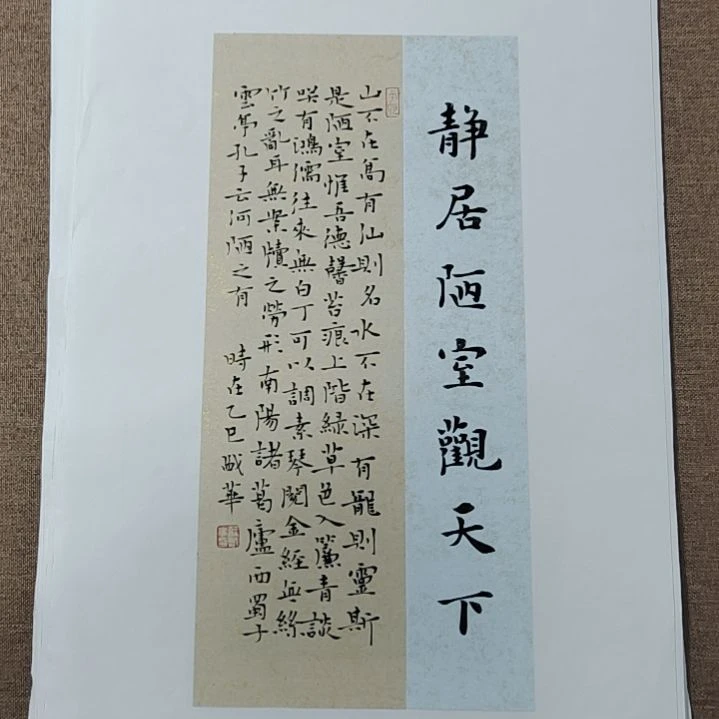 静居陋室觀天下
山不在髙有仙則名水不在深有龍則靈斯
是陋室惟吾德馨苔痕上階綠草色入簾青談
咲有鴻儒往來無白丁可以調素琴閱金經無絲
竹之亂耳無案牘之勞形南陽諸葛廬西蜀子
雲亭孔子云何陋之有 時在乙巳 華